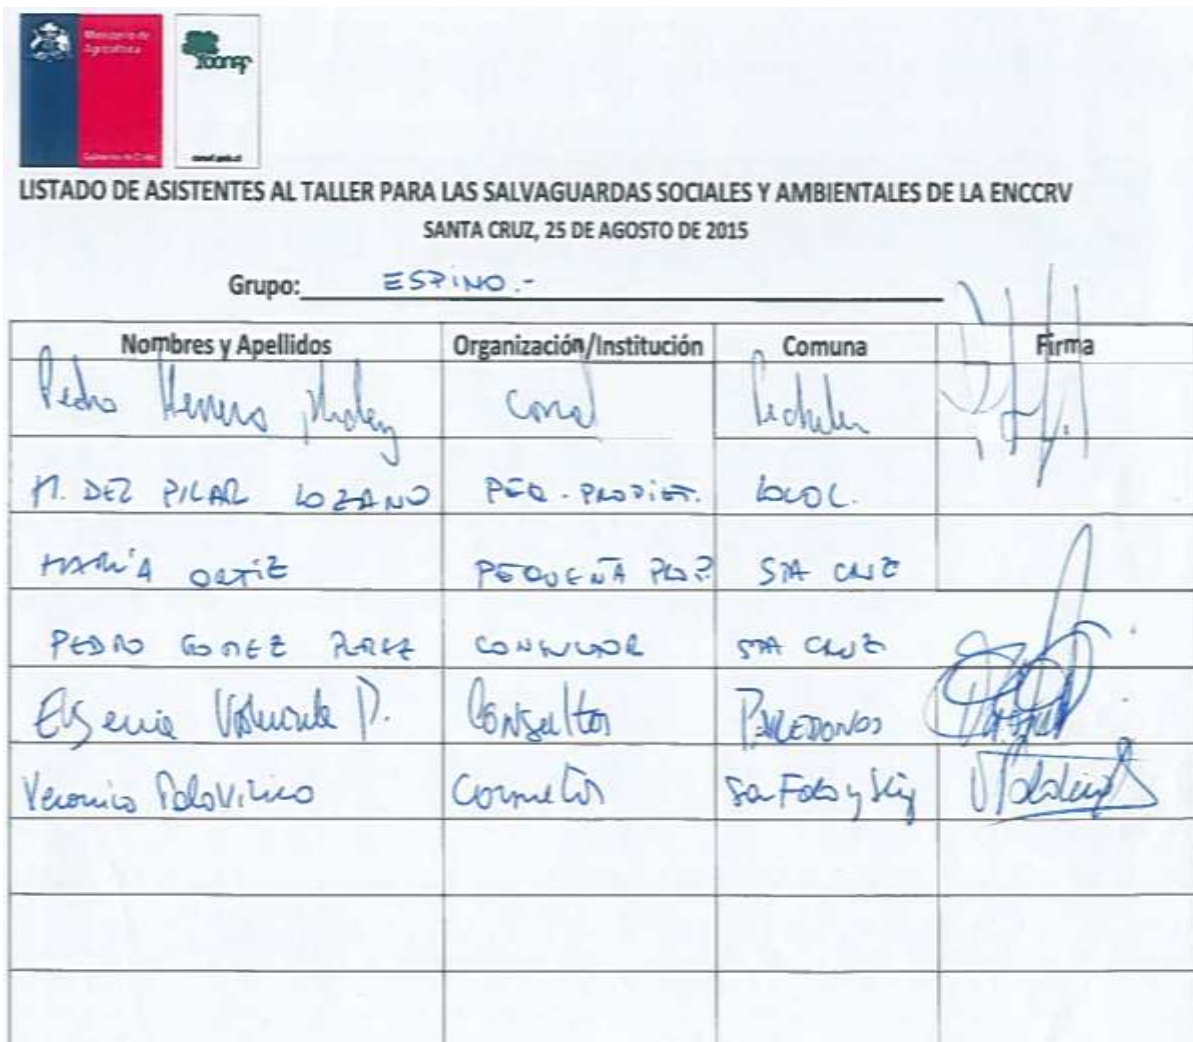 Ministerio de
Agricultura
Gobierno de Chile
conaf
conaf.gob.cl
LISTADO DE ASISTENTES AL TALLER PARA LAS SALVAGUARDAS SOCIALES Y AMBIENTALES DE LA ENCCRV
SANTA CRUZ, 25 DE AGOSTO DE 2015
Grupo: ESPINO.-
Nombres y Apellidos Organización/Institución Comuna Firma
Pedro Herrera
M. DEL PILAR LOZANO PEQ. PROPIET. LOLOL.
MARÍA ORTIZ PEQUEÑA PROP. STA CRUZ
PEDRO GOMEZ PEREZ STA CRUZ
Eugenia Valenzuela P. Consultor PAREDONES
Veronica